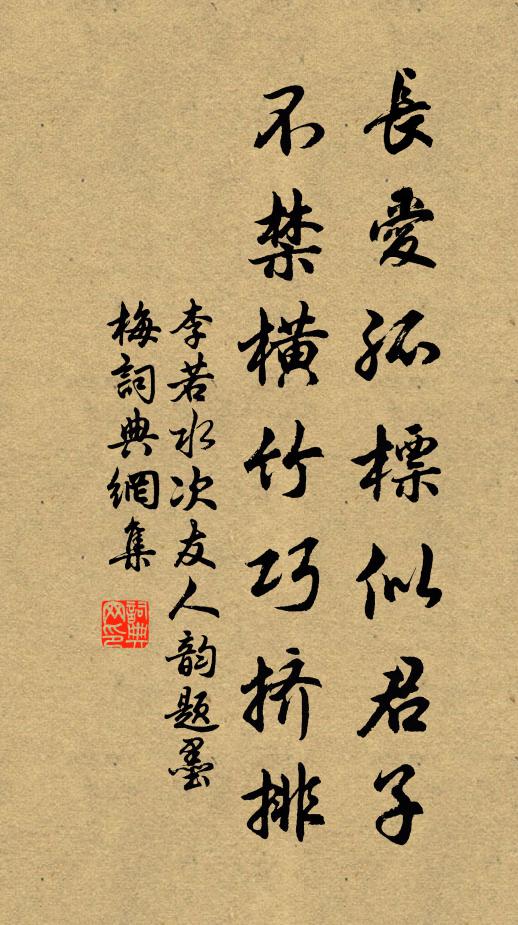 長愛孤標似君子
不禁橫竹巧挤排
李若水次友人韵题墨
梅詞典網集
詞典
网印